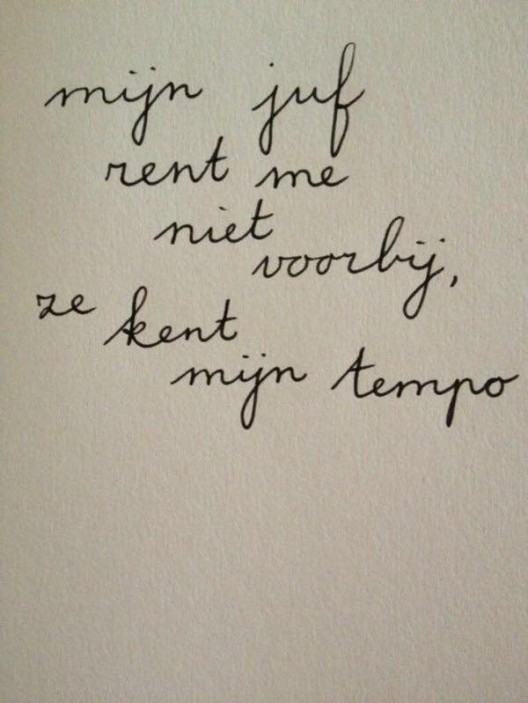 mijn juf
rent me
niet
voorbij,
ze kent
mijn tempo